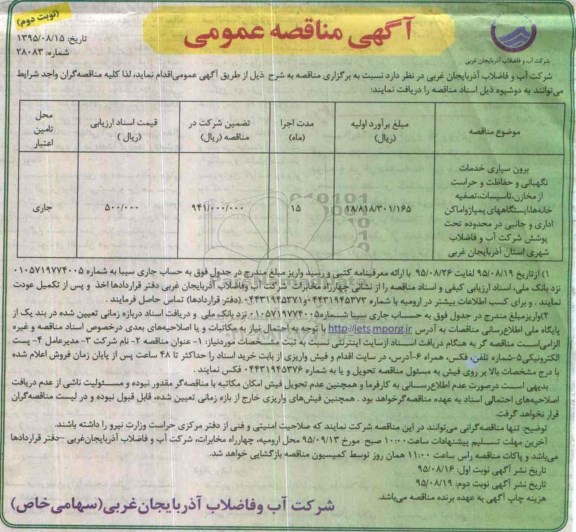 (نوبت دوم)
آگهی مناقصه عمومی
تاریخ: ۱۳۹۵/۰۸/۱۵
شماره: ۲۸۰۸۳
شرکت آب و فاضلاب آذربایجان غربی
شرکت آب و فاضلاب آذربایجان غربی در نظر دارد نسبت به برگزاری مناقصه به شرح ذیل از طریق آگهی عمومی اقدام نماید، لذا کلیه مناقصه‌گران واجد شرایط
می‌توانند به دوشیوه ذیل اسناد مناقصه را دریافت نمایند:
موضوع مناقصه
مبلغ برآورد اولیه (ریال)
مدت اجرا (ماه)
تضمین شرکت در مناقصه (ریال)
قیمت اسناد ارزیابی (ریال)
محل تامین اعتبار
برون سپاری خدمات
نگهبانی و حفاظت و حراست
از مخازن،تاسیسات،تصفیه
خانه‌ها،ایستگاههای پمپاژواماکن
اداری و جانبی در محدوده تحت
پوشش شرکت آب و فاضلاب
شهری استان آذربایجان غربی
۱۸/۸۱۸/۳۰۱/۱۶۵
۱۵
۹۴۱/۰۰۰/۰۰۰
۵۰۰/۰۰۰
جاری
۱) ازتاریخ ۹۵/۰۸/۱۹ لغایت ۹۵/۰۸/۲۶ با ارائه معرفینامه کتبی و رسید واریز مبلغ مندرج در جدول فوق به حساب جاری سیبا به شماره ۰۱۰۵۷۱۹۷۷۴۰۰۵
نزد بانک ملی، اسناد ارزیابی کیفی و اسناد مناقصه را از نشانی چهارراه مخابرات شرکت آب وفاضلاب آذربایجان غربی دفتر قراردادها اخذ و پس از تکمیل عودت
نمایند . و برای کسب اطلاعات بیشتر در ارومیه با شماره ۰۴۴۳۱۹۴۵۳۷۳و۰۴۴۳۱۹۴۵۳۷۱ (دفتر قراردادها) تماس حاصل فرمایند .
۲)واریزمبلغ مندرج در جدول فوق به حساب جاری سیبا شماره۰۱۰۵۷۱۹۷۷۴۰۰۵ نزد بانک ملی و دریافت اسناد دربازه زمانی تعیین شده در بند یک از
پایگاه ملی اطلاع‌رسانی مناقصات به آدرس http://iets.mporg.ir با توجه به احتمال نیاز به مکاتبات و یا اصلاحیه‌های بعدی درخصوص اسناد مناقصه و غیره
الزامی‌است مناقصه گر به هنگام دریافت اسناد ازسایت اینترنتی نسبت به ثبت مشخصات موردنیاز: ۱- عنوان مناقصه ۲- نام شرکت ۳- مدیرعامل ۴- پست
الکترونیکی۵-شماره تلفن، فکس، همراه ۶-آدرس، در سایت اقدام و فیش واریزی از بابت خرید اسناد را حداکثر تا ۴۸ ساعت پس از پایان زمان فروش اعلام شده
با درج مشخصات بالا بر روی فیش به مسئول مناقصه تحویل و یا به شماره ۰۴۴۳۱۹۴۵۳۷۶ فکس نمایند .
بدیهی است درصورت عدم اطلاع‌رسانی به کارفرما و همچنین عدم تحویل فیش امکان مکاتبه با مناقصه‌گر مقدور نبوده و مسئولیت ناشی از عدم دریافت
اصلاحیه‌های احتمالی اسناد به عهده مناقصه‌گرخواهد بود . همچنین فیش‌های واریزی خارج از بازه زمانی تعیین شده، قابل قبول نبوده و در لیست مناقصه‌گران
قرار نخواهد گرفت.
توضیح: تنها مناقصه‌گرانی می‌توانند در این مناقصه شرکت نمایند که صلاحیت امنیتی و فنی از دفتر مرکزی حراست وزارت نیرو را داشته باشند.
آخرین مهلت تسلیم پیشنهادات ساعت۱۰:۰۰ صبح مورخ ۹۵/۰۹/۱۳ محل ارومیه، چهارراه مخابرات، شرکت آب و فاضلاب آذربایجان‌غربی –دفتر قراردادها
می‌باشد و پاکات مناقصه راس ساعت ۱۱:۰۰ همان روز توسط کمیسیون مناقصه بازگشایی خواهد شد.
تاریخ نشر آگهی نوبت اول: ۹۵/۰۸/۱۶
تاریخ نشر آگهی نوبت دوم: ۹۵/۰۸/۱۹
هزینه چاپ آگهی به عهده برنده مناقصه می‌باشد.
شرکت آب وفاضلاب آذربایجان‌غربی(سهامی‌خاص)